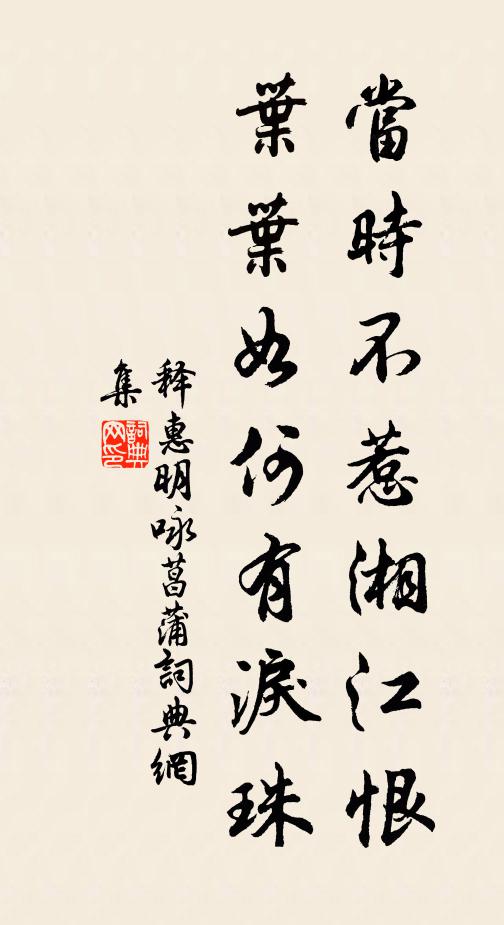 當時不惹湘江恨
葉葉如何有淚珠
釋惠明咏菖蒲詞典網
集
詞典
网印